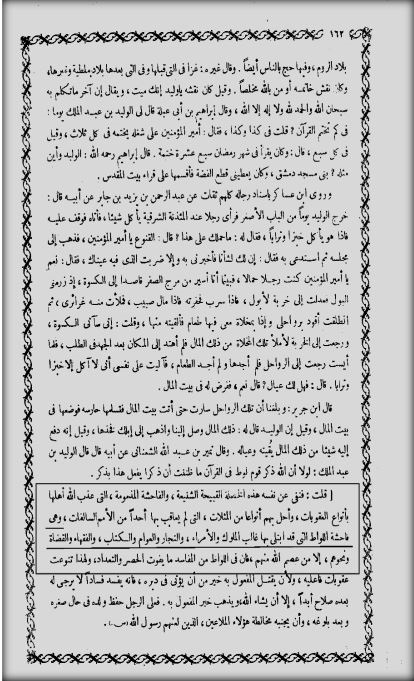 ١٦٢
بلاد الروم، وفيها حج بالناس أيضاً. وقال غيره: غزا فى التى قبلها وفى التى بعدها بلاد ملطية وغيرها،
وكان نقش خاتمه أومن بالله مخلصاً. وقيل كان نقشه ياوليد إنك ميت، ويقال إن آخر ما تكلم به
سبحان الله والحمد لله ولا إله إلا الله، وقال إبراهيم بن أبى عبلة قال لى الوليد بن عبد الملك يوما:
فى كم تختم القرآن؟ قلت فى كذا وكذا، فقال: أمير المؤمنين على شغله يختمه فى كل ثلاث، وقيل
فى كل سبع، قال: وكان يقرأ فى شهر رمضان سبع عشرة ختمة. قال إبراهيم رحمه الله: الوليد وأين
مثله؟ بنى مسجد دمشق، وكان يعطينى قطع الفضة فأقسمها على قراء بيت المقدس.
وروى ابن عساكر باسناد رجاله كلهم ثقات عن عبد الرحمن بن يزيد بن جابر عن أبيه قال:
خرج الوليد يوماً من الباب الأصغر فرأى رجلا عند المئذنة الشرقية يأكل شيئا، فأتاه فوقف عليه
فاذا هو يأكل خبزا وتراباً، فقال له: ما حملك على هذا؟ قال: القنوع يا أمير المؤمنين، فذهب إلى
مجلسه ثم استدعى به فقال: إن لك لشأنا فأخبرنى به وإلا ضربت الذى فيه عيناك، فقال: نعم
يا أمير المؤمنين كنت رجلا حمالا، فبينما أنا أسير من مرج الصفر قاصدا إلى الكسوة، إذ زرمنى
البول فعدلت إلى خربة لأبول، فاذا سرب فحفرته فاذا مال صبيب، فملأت منه غرائرى، ثم
انطلقت أقود برواحلى وإذا بمخلاة معى فيها طعام فألقيته منها، وقلت: إنى سآتى الكسوة،
ورجعت إلى الخربة لأملأ تلك المخلاة من ذلك المال فلم أهتد إلى المكان بعد الجهد فى الطلب، فلما
أيست رجعت إلى الرواحل فلم أجدها ولم أجد الطعام، فآليت على نفسى أنى لا آكل إلا خبزا
وترابا. قال: فهل لك عيال؟ قال نعم، ففرض له فى بيت المال.
قال ابن جرير: وبلغنا أن تلك الرواحل سارت حتى أتت بيت المال فتسلمها حارسه فوضعها فى
بيت المال، وقيل إن الوليد قال له: ذلك المال وصل إلينا واذهب إلى إبلك فخذها، وقيل إنه دفع
إليه شيئا من ذلك المال يقيته وعياله. وقال نمير بن عبد الله الشعنانى عن أبيه قال قال الوليد بن
عبد الملك: لولا أن الله ذكر قوم لوط فى القرآن ما ظننت أن ذكرا يفعل هذا بذكر.
[ قلت: فنفى عن نفسه هذه الخصلة القبيحة الشنيعة، والفاحشة المذمومة، التى عذب الله أهلها
بأنواع العقوبات، وأحل بهم أنواعا من المثلات، التى لم يعاقب بها أحداً من الأمم السالفات، وهى
فاحشة اللواط التى قد ابتلى بها غالب الملوك والأمراء، والتجار والعوام والكتاب، والفقهاء والقضاة
ونحوهم، إلا من عصم الله منهم، فان فى اللواط من المفاسد ما يفوت الحصر والتعداد، ولهذا تنوعت
عقوبات فاعليه، ولأن يقتل المفعول به خير من أن يؤتى فى دبره، فانه يفسد فساداً لا يرجى له
بعده صلاح أبداً، إلا أن يشاء الله ويذهب خبر المفعول به. فعلى الرجل حفظ ولده فى حال صغره
وبعد بلوغه، وأن يجنبه مخالطة هؤلاء الملاعين، الذين لعنهم رسول الله